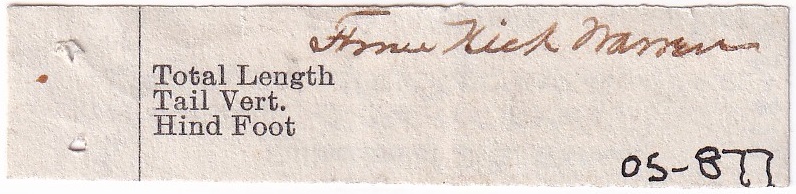 Kick Warren
Total Length
Tail Vert.
Hind Foot
05-877